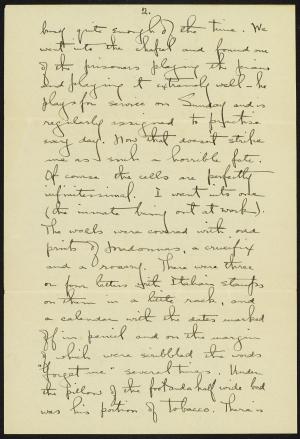 2.
busy quite enough of the time. We
went into the chapel and found one
of the prisoners playing the piano
and playing it extremely well – he
plays for service on Sunday and is
regularly assigned to practice
every day. Now that doesn't strike
me as such a horrible fate.
Of course the cells are perfectly
infinitessimal. I went into one
(the inmate being out at work).
The walls were covered with odd
prints of Madonnas, a crucifix
and a rosary. There were three
or four letters with Italian stamps
on them in a little rack, and
a calendar with the dates marked
off in pencil and on the margin
of which were scribbled the words
"forget me" several times. Under
the pillows of the foot and a half wide bed
was his portion of tobacco. There is